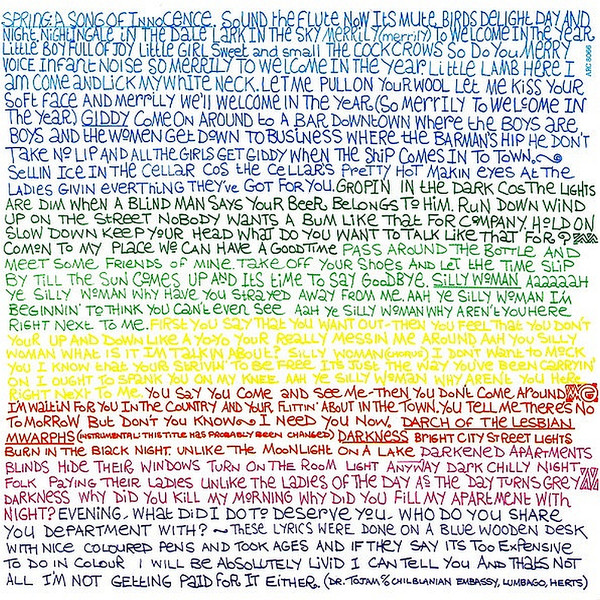 SPRING: A SONG OF INNOCENCE. SOUND the FLUTE NOW ITS MUTE, BIRDS DELIGHT DAY AND
NIGHT, NIGHTINGALE IN THE DALE LARK IN THE SKY MERRILY (merrily) TO WELCOME IN THE YEAR
LITTLE BOY FULL OF JOY LITTLE GIRL SWEET and SMALL THE COCK CROWS SO DO YOU MERRY
VOICE INFANT NOISE SO MERRILY TO WELCOME IN THE YEAR. LITTLE LAMB HERE I
AM COME AND LICK MY WHITE NECK. LET ME PULL ON YOUR WOOL LET ME KISS YOUR
SOFT FACE AND MERRILY WE'LL WELCOME IN THE YEAR, (SO MERRILY TO WELCOME IN
THE YEAR.) GIDDY COME ON AROUND to A BAR, DOWNTOWN WHERE the BOYS ARE
BOYS AND the WOMEN GET DOWN TO BUSINESS WHERE THE BARMAN'S HIP HE DON'T
TAKE NO LIP AND ALL THE GIRLS GET GIDDY WHEN THE SHIP COMES IN TO TOWN.
SELLIN ICE IN THE CELLAR COS the CELLAR'S PRETTY HOT MAKIN EYES AT THE
LADIES GIVIN EVERTHING THEY'VE GOT FOR YOU. GROPIN IN the DARK COS THE LIGHTS
ARE DIM WHEN A BLIND MAN SAYS YOUR BEER BELONGS TO HIM. RUN DOWN WIND
UP ON the STREET NOBODY WANTS A BUM LIKE THAT FOR COMPANY. HOLD ON
SLOW DOWN KEEP YOUR HEAD WHAT DO YOU WANT TO TALK LIKE THAT FOR?
COMON TO MY PLACE WE CAN HAVE A GOODTIME PASS AROUND THE BOTTLE AND
MEET SOME FRIENDS OF MINE. TAKE OFF YOUR SHOES AND LET the TIME SLIP
BY TILL THE SUN COMES UP AND ITS TIME TO SAY GOODBYE. SILLY WOMAN AAAAAAH
YE SILLY WOMAN WHY HAVE YOU STRAYED AWAY FROM ME. AAH YE SILLY WOMAN I'M
BEGINNIN' TO THINK YOU CAN'T EVEN SEE AAH YE SILLY WOMAN WHY AREN'T YOU HERE
RIGHT NEXT TO ME. FIRST YOU SAY THAT YOU WANT OUT - THEN YOU FEEL THAT YOU DON'T
YOUR UP AND DOWN LIKE A YOYO YOUR REALLY MESSIN ME AROUND AAH YOU SILLY
WOMAN WHAT IS IT I'M TALKIN ABOUT? SILLY WOMAN (CHORUS) I DONT WANT TO MOCK
YOU I KNOW THAT YOUR STRIVIN' TO BE FREE ITS JUST THE WAY YOU'VE BEEN CARRYIN'
ON I OUGHT TO SPANK YOU ON MY KNEE AAH YE SILLY WOMAN WHY AREN'T YOU HERE
RIGHT NEXT TO ME. YOU SAY YOU COME AND SEE ME - THEN YOU DON'T COME AROUND
I'M WAITIN FOR YOU IN THE COUNTRY AND YOUR FLITTIN' ABOUT IN THE TOWN. YOU TELL ME THERE'S NO
TOMORROW BUT DON'T YOU KNOW I NEED YOU NOW. DARCH OF THE LESBIAN
MWARPHS (INSTRUMENTAL: THIS TITLE HAS PROBABLY BEEN CHANGED) DARKNESS BRIGHT CITY STREET LIGHTS
BURN IN THE BLACK NIGHT. UNLIKE THE MOONLIGHT ON A LAKE DARKENED APARTMENTS
BLINDS HIDE THEIR WINDOWS TURN ON THE ROOM LIGHT ANYWAY DARK CHILLY NIGHT
FOLK PAYING THEIR LADIES UNLIKE THE LADIES OF THE DAY AS THE DAY TURNS GREY
DARKNESS WHY DID YOU KILL MY MORNING WHY DID YOU FILL MY APARTMENT WITH
NIGHT? EVENING. WHAT DID I DO TO DESERVE YOU. WHO DO YOU SHARE
YOU DEPARTMENT WITH? ~ THESE LYRICS WERE DONE ON A BLUE WOODEN DESK
WITH NICE COLOURED PENS AND TOOK AGES AND IF THEY SAY ITS TOO EXPENSIVE
TO DO IN COLOUR I WILL BE ABSOLUTELY LIVID I CAN TELL YOU AND THATS NOT
ALL I'M NOT GETTING PAID FOR IT EITHER. (DR. TOJAM % CHILBLANIAN EMBASSY, LUMBAGO, HERTS)